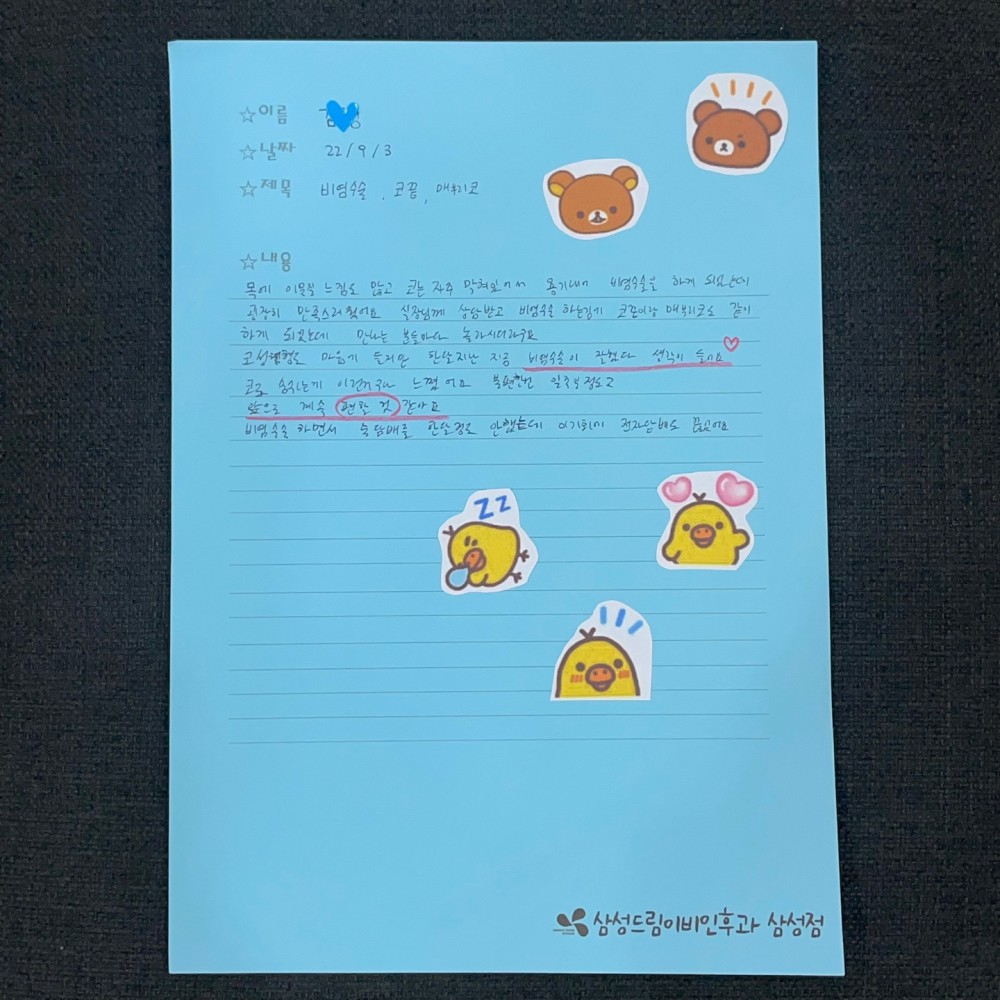 ☆이름
☆날짜 22/9/3
☆제목 비염수술, 코끝, 매부리코
☆내용
목에 이물질 느낌도 많고 코는 자주 막혀있어서 용기내어 비염수술을 하게 되었는데
굉장히 만족스러웠어요 실장님께 상담받고 비염수술 하는김에 코끝이랑 매부리코도 같이
하게 되었는데 만나는 분들마다 놀라시더라구요
코성형도 마음에 들지만 한달지난 지금 비염수술이 잘했다 생각이 들어요 ♡
코로 숨쉬는게 이런거구나 느꼈어요 불편한건 일주일정도고
앞으로 계속 편한 것 같아요
비염수술 하면서 술담배를 한달정도 안했는데 이기회에 전자담배도 끊었어요
ZZ
삼성드림이비인후과 삼성점